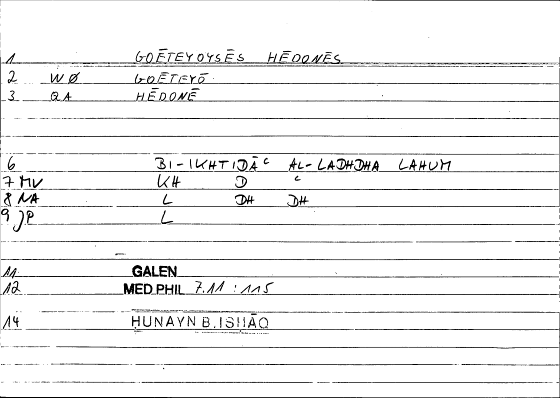 1 GOĒTEYOYSĒS HĒDONĒS
2 WØ GOĒTEYŌ
3 QA HĒDONĒ
6 BI-IKHTIDĀʿ AL-LADHDHA LAHUM
7 MV KH D ʿ
8 NA L DH DH
9 JP L
11 GALEN
12 MED PHIL 7.11 : 115
14 HUNAYN B. ISHĀQ